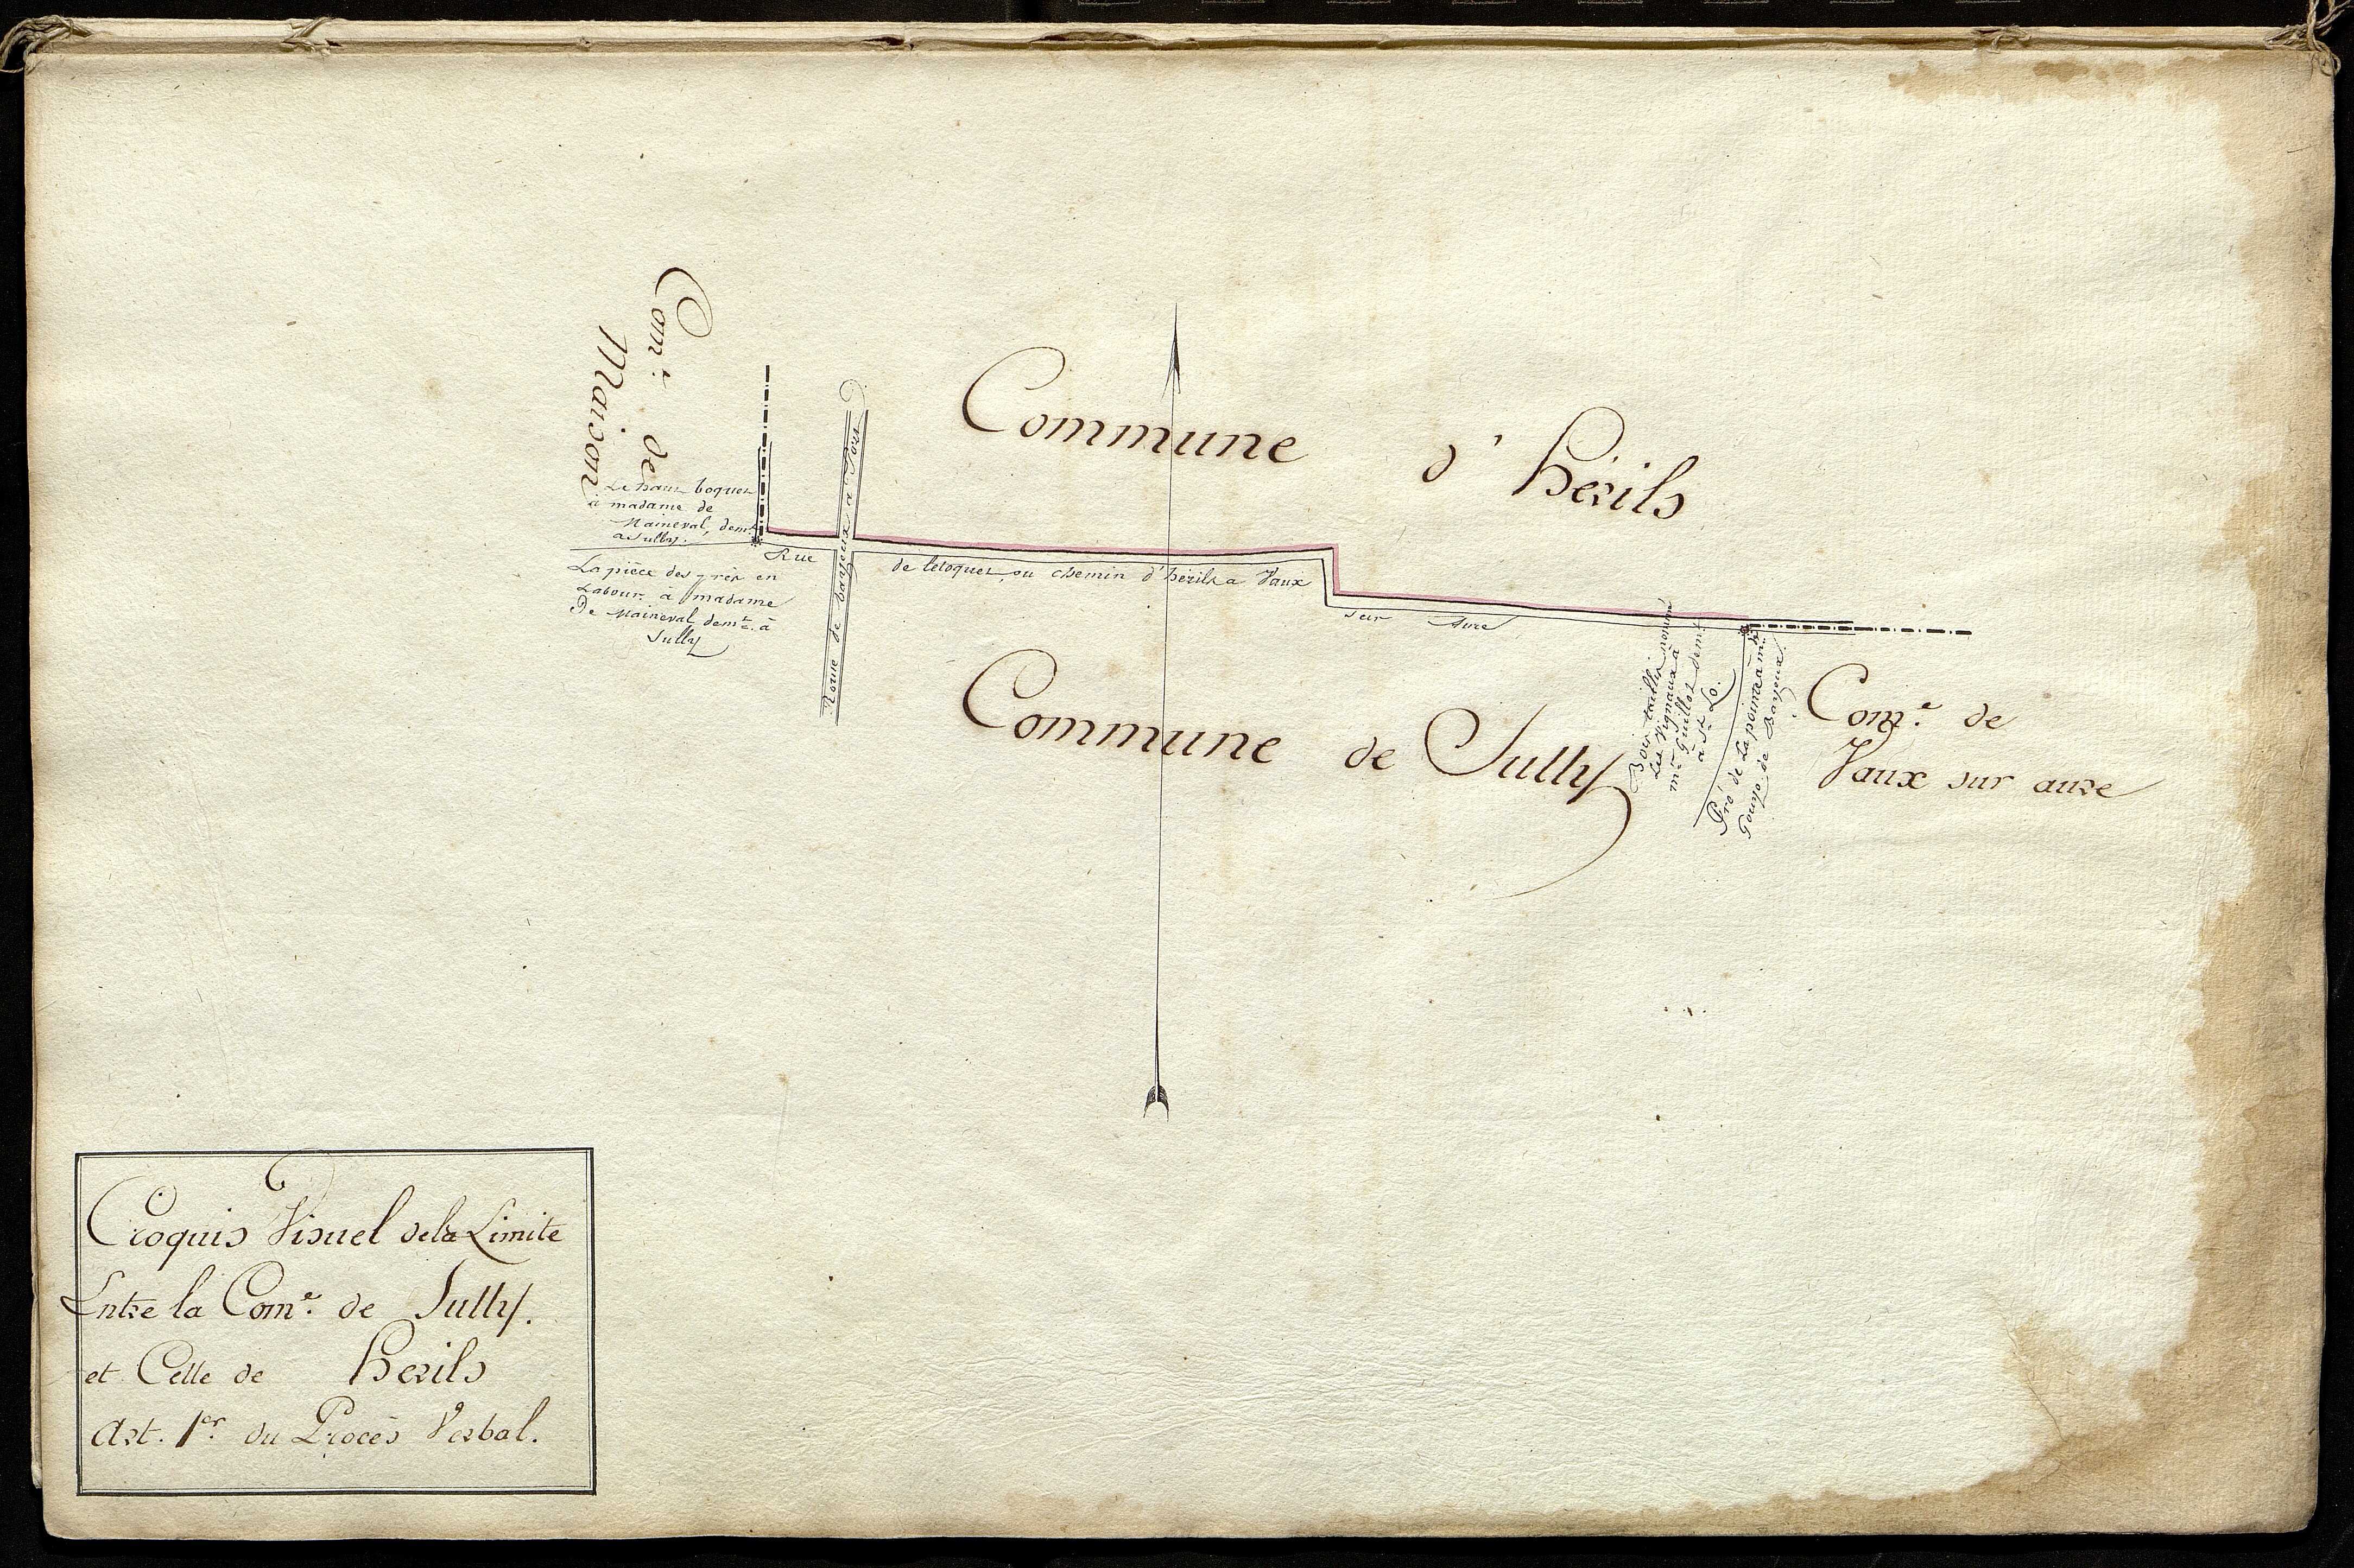 Com.e de
Maison
Commune d'hérils
Le haut boquet
à madame de
Maineval, demt.
à Sully.
La pièce des grès en
Labour. à madame
De Maineval demt. à
Sully
Route de bayeux a Port
Rue de letoquet ou chemin d'hérils a Vaux
sur Aure
Commune de Sully
Bois taillis nommé
Les Vignaux à
mr. Guillot demt.
à St. Lo.
Pré de La pointe à mr.
de Bayeux.
Com.e de
Vaux sur aure
Croquis Visuel dela Limite
Entre la Com.e de Sully.
et Celle de herils
Art. 1er. du Procès Verbal.